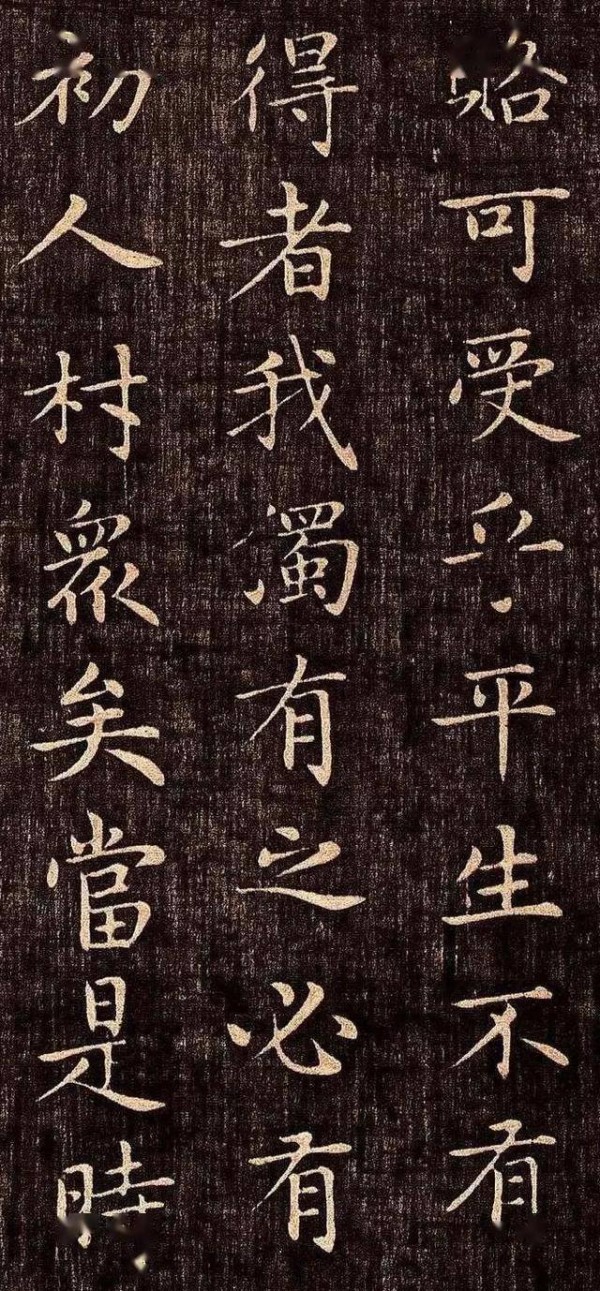 可受乎平生不有
得者我獨有之必有
初人村衆矣當是時